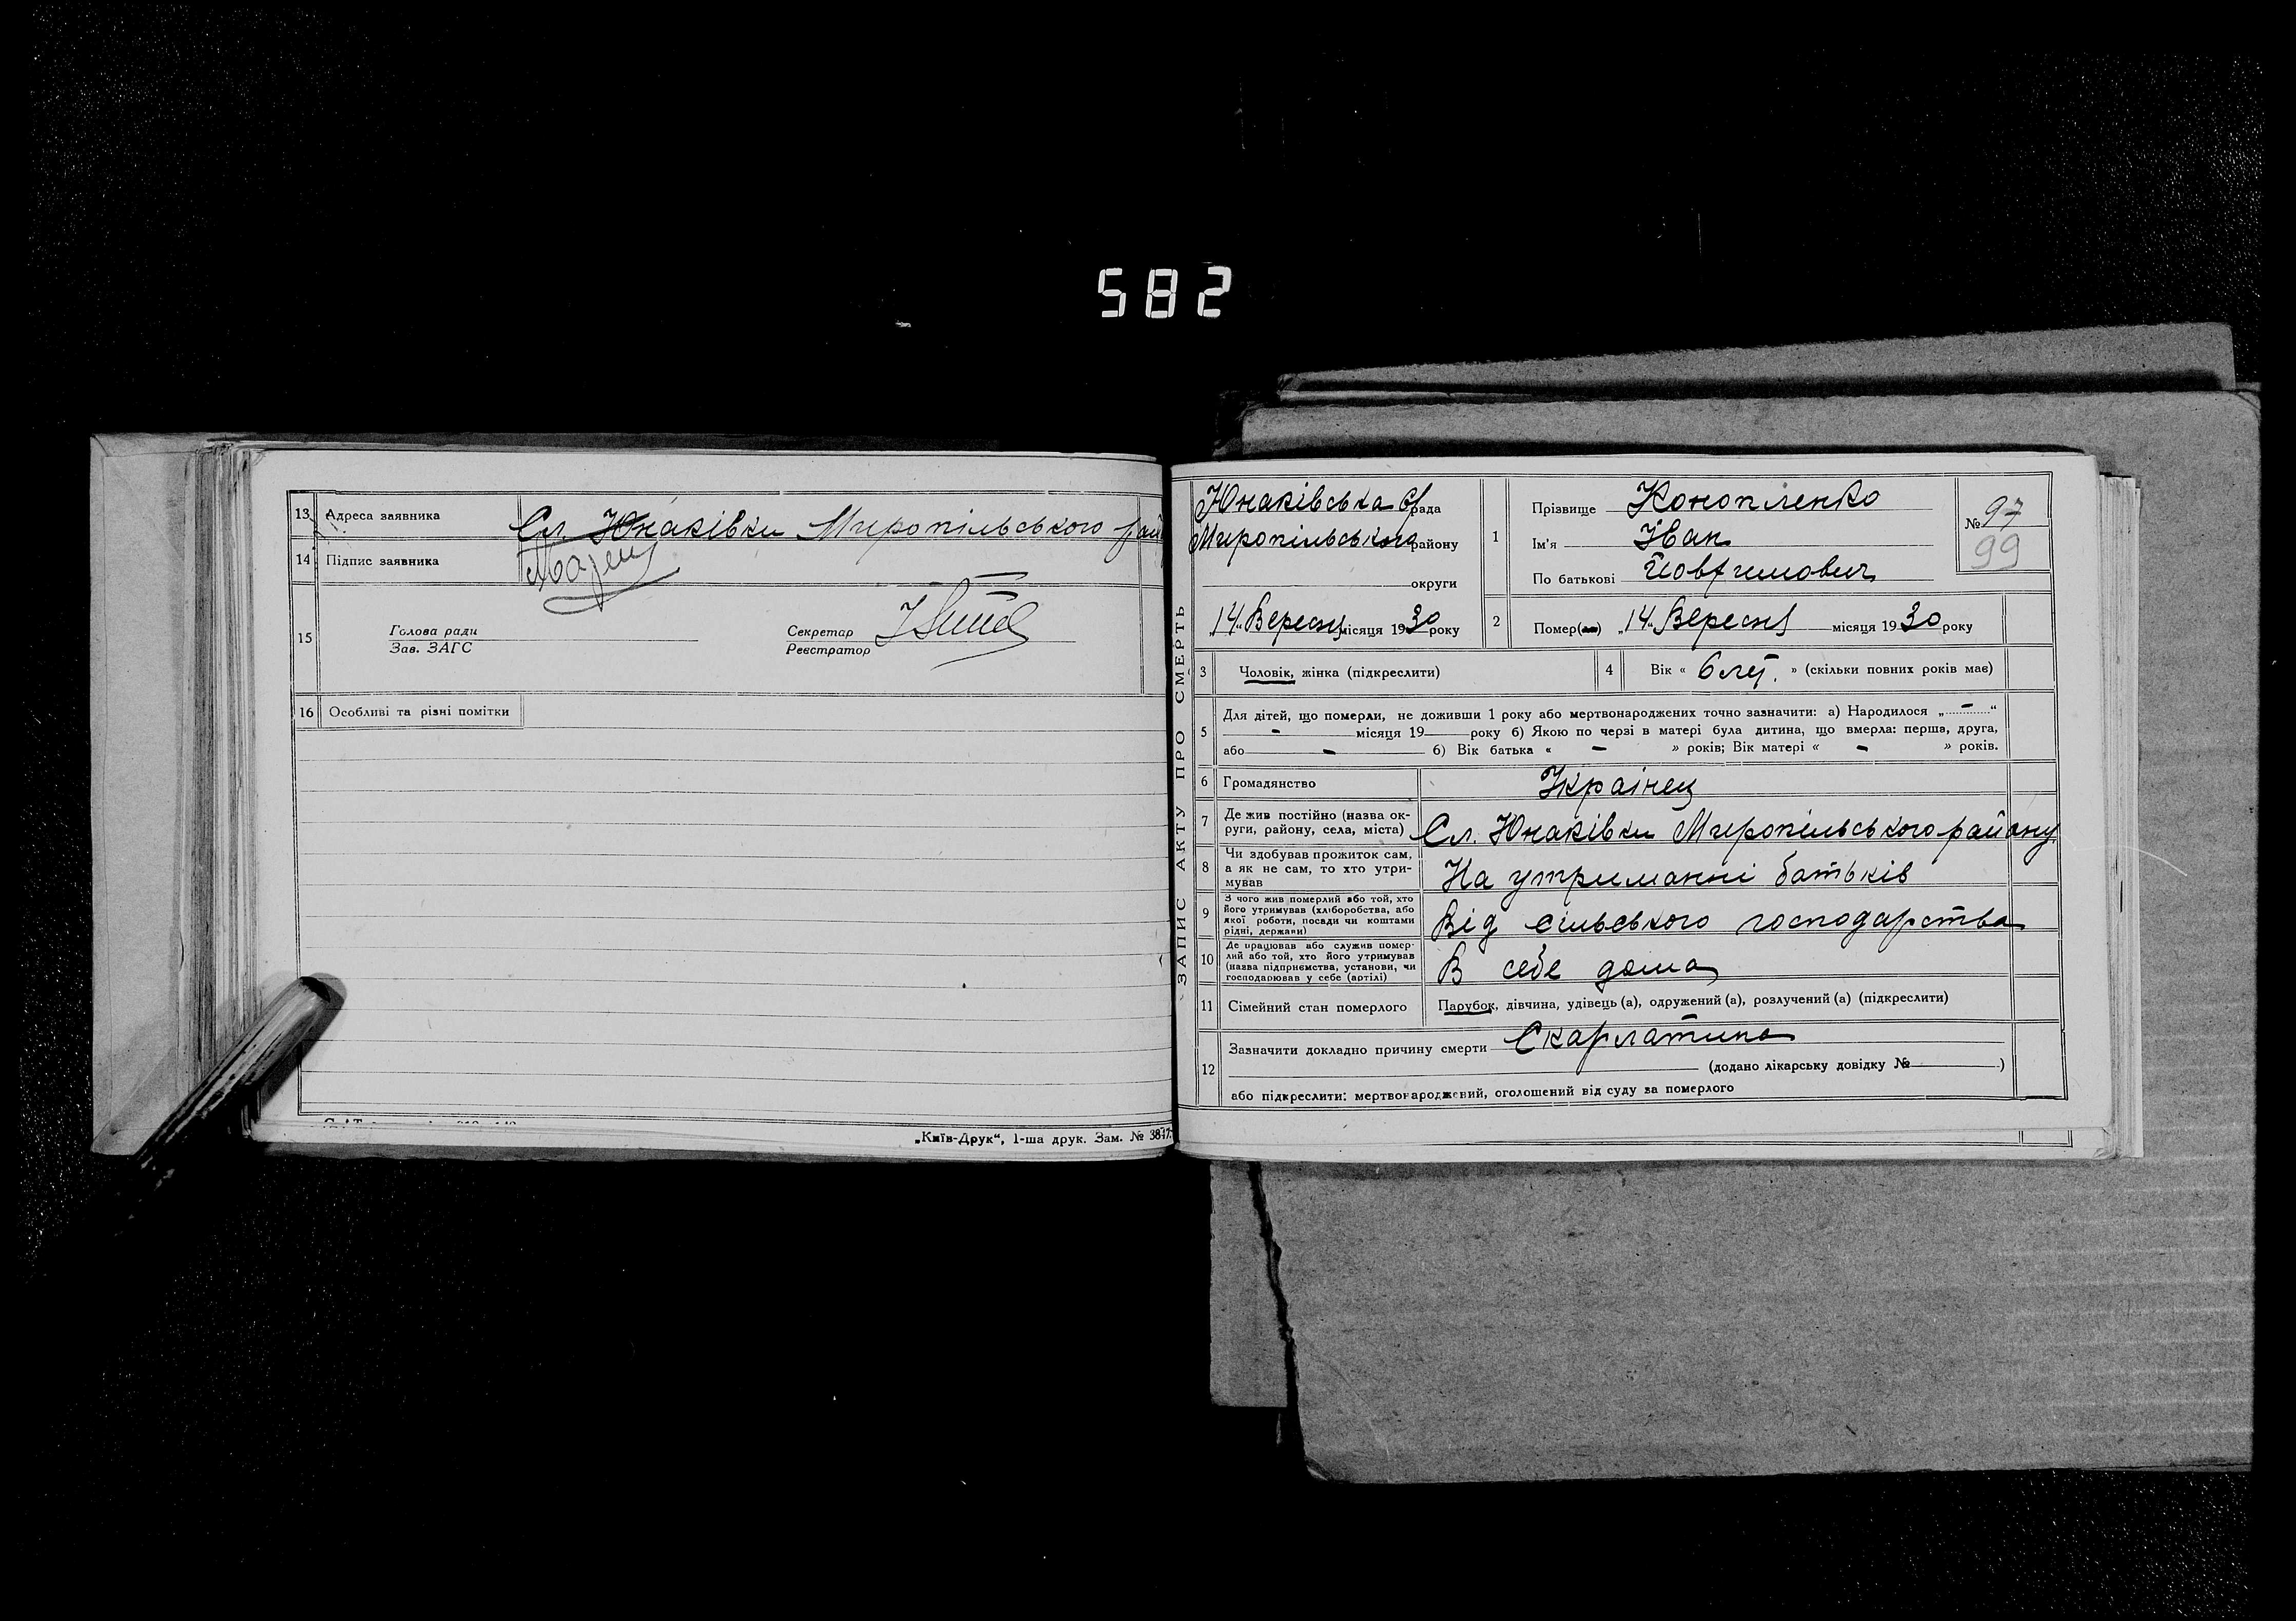 582
13 Адреса заявника Сл. Юнаківки Миропільського рай
14 Підпис заявника
15 Голова ради Секретар
Зав. ЗАГС Реєстратор
16 Особливі та різні помітки
„Київ-Друк“, 1-ша друк. Зам. № 3847.
ЗАПИС АКТУ ПРО СМЕРТЬ
Юнаківська с/рада
Миропільського району
округи
„14“ Вересня місяця 1930 року
1 Прізвище Конопленко
Ім'я Іван
По батькові Йовтимович
№ 97
99
2 Помер(ла) „14“ Вересня місяця 1930 року
3 Чоловік, жінка (підкреслити)
4 Вік « 6 лєт. » (скільки повних років має)
5 Для дітей, що померли, не доживши 1 року або мертвонароджених точно зазначити: а) Народилося „ - “
- місяця 19 року б) Якою по черзі в матері була дитина, що вмерла: перша, друга,
або - б) Вік батька « - » років; Вік матері « - » років.
6 Громадянство Украінец
7 Де жив постійно (назва ок-
руги, району, села, міста) Сл. Юнаківки Миропільського району
8 Чи здобував прожиток сам,
а як не сам, то хто утри-
мував На утриманні батьків
9 З чого жив померлий або той, хто
його утримував (хліборобства, або
якої роботи, посади чи коштами
рідні, держави) Від сільського господарства
10 Де працював або служив помер-
лий або той, хто його утримував
(назва підприємства, установи, чи
господарював у себе (артілі) В себе дома
11 Сімейний стан померлого Парубок, дівчина, удівець (а), одружений (а), розлучений (а) (підкреслити)
12 Зазначити докладно причину смерти Скарлатина
(додано лікарську довідку № )
або підкреслити: мертвонароджений, оголошений від суду за померлого